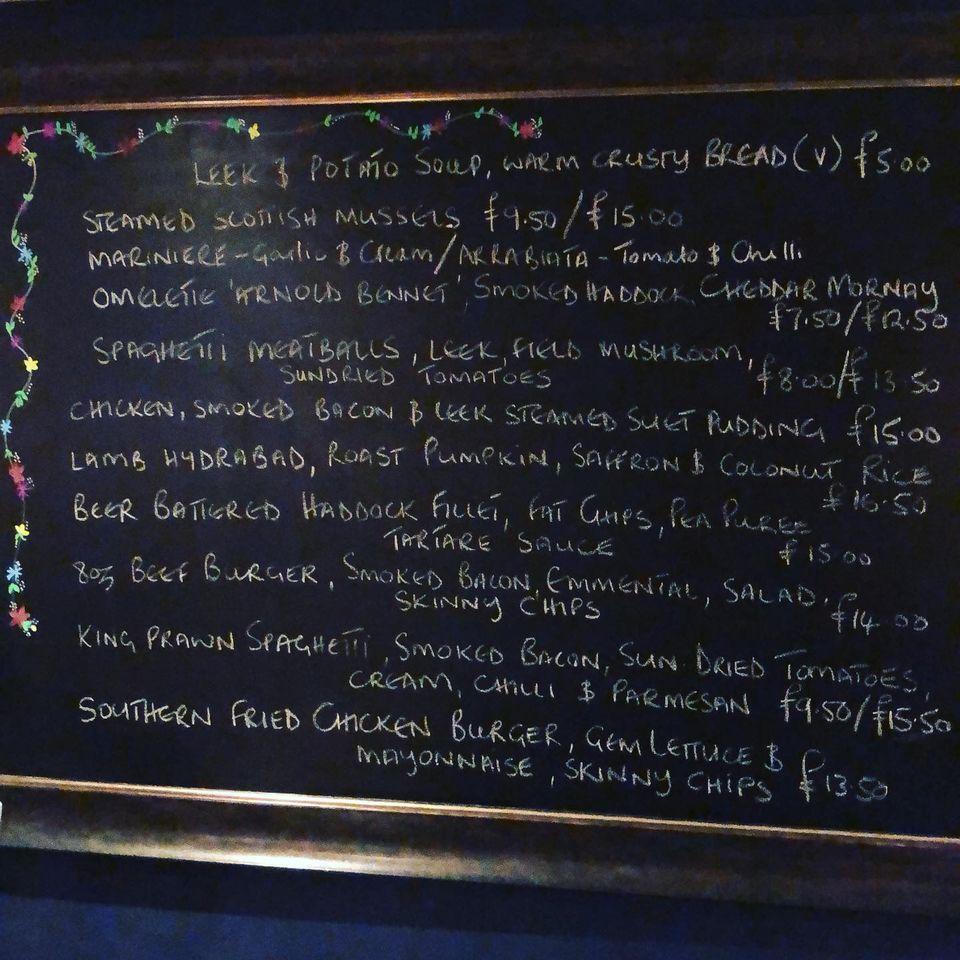 LEEK & POTATO SOUP, WARM CRUSTY BREAD (V) £5.00
STEAMED SCOTTISH MUSSELS £9.50/£15.00
MARINIERE - Garlic & Cream/ARRABIATA - Tomato & Chilli
OMELETTE 'ARNOLD BENNET', SMOKED HADDOCK, CHEDDAR MORNAY
£7.50/£12.50
SPAGHETTI MEATBALLS, LEEK, FIELD MUSHROOM,
SUNDRIED TOMATOES £8.00/£13.50
CHICKEN, SMOKED BACON & LEEK STEAMED SUET PUDDING £15.00
LAMB HYDRABAD, ROAST PUMPKIN, SAFFRON & COLONUT RICE
£16.50
BEER BATTERED HADDOCK FILLET, FAT CHIPS, PEA PUREE
TARTARE SAUCE £15.00
8oz BEEF BURGER, SMOKED BACON, EMMENTAL, SALAD,
SKINNY CHIPS £14.00
KING PRAWN SPAGHETTI, SMOKED BACON, SUN DRIED TOMATOES,
CREAM, CHILLI & PARMESAN £9.50/£15.50
SOUTHERN FRIED CHICKEN BURGER, GEM LETTUCE &
MAYONNAISE, SKINNY CHIPS £13.50